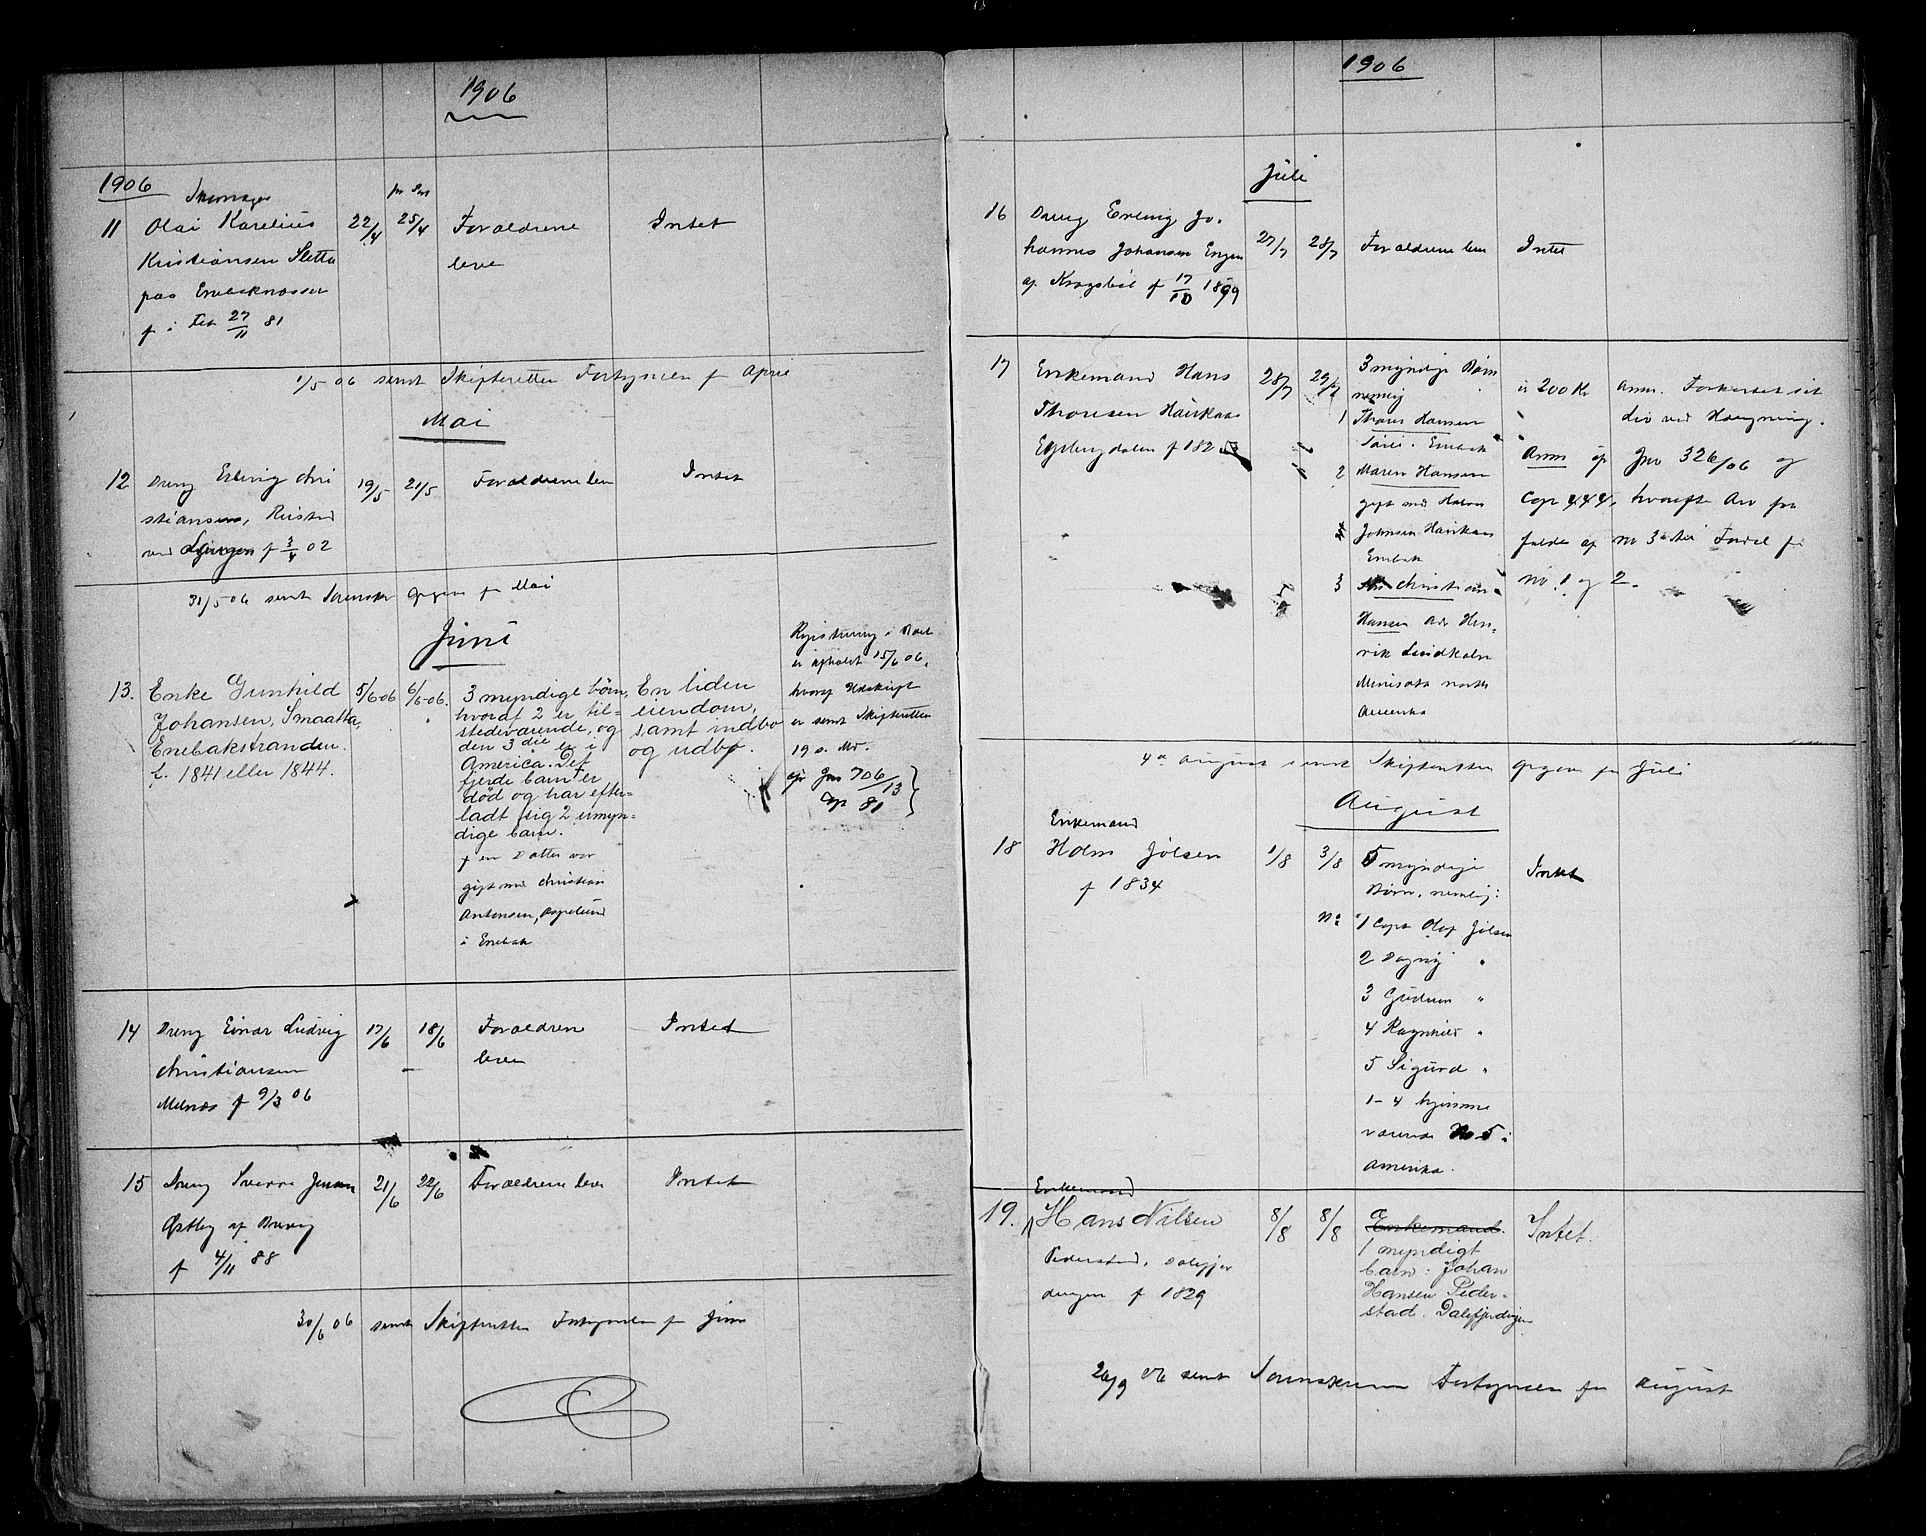 1906
1906
Skomager
11 Olai Karelius
Kristiansen Sletta
paa Enebaknesset
f i Fet 27/11 81
22/4
pr
25/4
Forældrene
leve
Intet
1/5 06 sendt Skifteretten Fortegnelsen for April
Mai
12 Dreng Erling Chri
stiansen,
ved f 3/4 02
19/5 21/5 Forældrene leve Intet
31/5 06 sendt Sorenskr Opgave for Mai
Juni
13. Enke Gunhild
Johansen, Smaatta,
Enebakstranden.
f. 1841 eller 1844.
5/6-06 6/6-06.
3 myndige børn,
hvoraf 2 er til-
stedeværende, og
den 3 die er i
America. Det
fjerde barn er
død og har efter-
ladt sig 2 umyn-
dige barn.
en Datter var
gift med Christian
Antonsen,
i Enebak
En liden
eiendom,
samt indbo
og udbo.
Registrering i Boet
er afholdt 15/6 06,
hvoraf Udskrift
er sendt Skifteretten
19 s. Md.
cfr Jnr 706/13
Cop 81
14 Dreng Einar Ludvig
Christiansen
Melnæs f 9/3 06
17/6 18/6
Forældrene
leve
Intet
15 Dreng Sverre Jensen
Østby af
f 4/11 88
21/6 22/6 Forældrene leve Intet
30/6 06 sendt Skifteretten Fortegnelsen for Juni
1906
Juli
16 Dreng Erling Jo-
hannes Johansen Engen
af Krogsbøl f 17/10 1899
27/7 28/7 Forældrene leve Intet
17 Enkemand Hans
Thoresen Haikaas
f 182
28/7 29/7
3 myndige Børn
nemlig
1 Thorer Hansen
Enebak
2 Maren Hansen
gift med
Johnsen Haikaas
Enebak
3 Christian
Hansen Adr Hen-
rik Lindholm
Minisota north
Amerika
200 Kr
Anm. Forkortet sit
Liv ved Hængning.
Anm cfr Jnr 326/06 og
Cop 444, hvorefter Arv fra
falder af no 3 til Fordel for
no 1 og 2.
4de August sendt Skifteretten Opgave for Juli
August
Enkemand
18 Holm Jølsen
f 1834
1/8 3/8
5 myndige
Børn, nemlig:
No 1 Capt Olaf Jølsen
2 Dagny "
3 Gudrun "
4 Ragnhild "
5 Sigurd "
1-4 hjemme
værende No 5 i
Amerika.
Intet
Enkemand
19. Hans Nilsen
Pederstad, Dalefjer
dingen f 1829
8/8 8/8
Enkemand.
1 myndigt
barn: Johan
Hansen Peder-
stad. Dalefjerdingen
Intet.
26/9 06 sendt Sorenskriveren Fortegnelsen for August